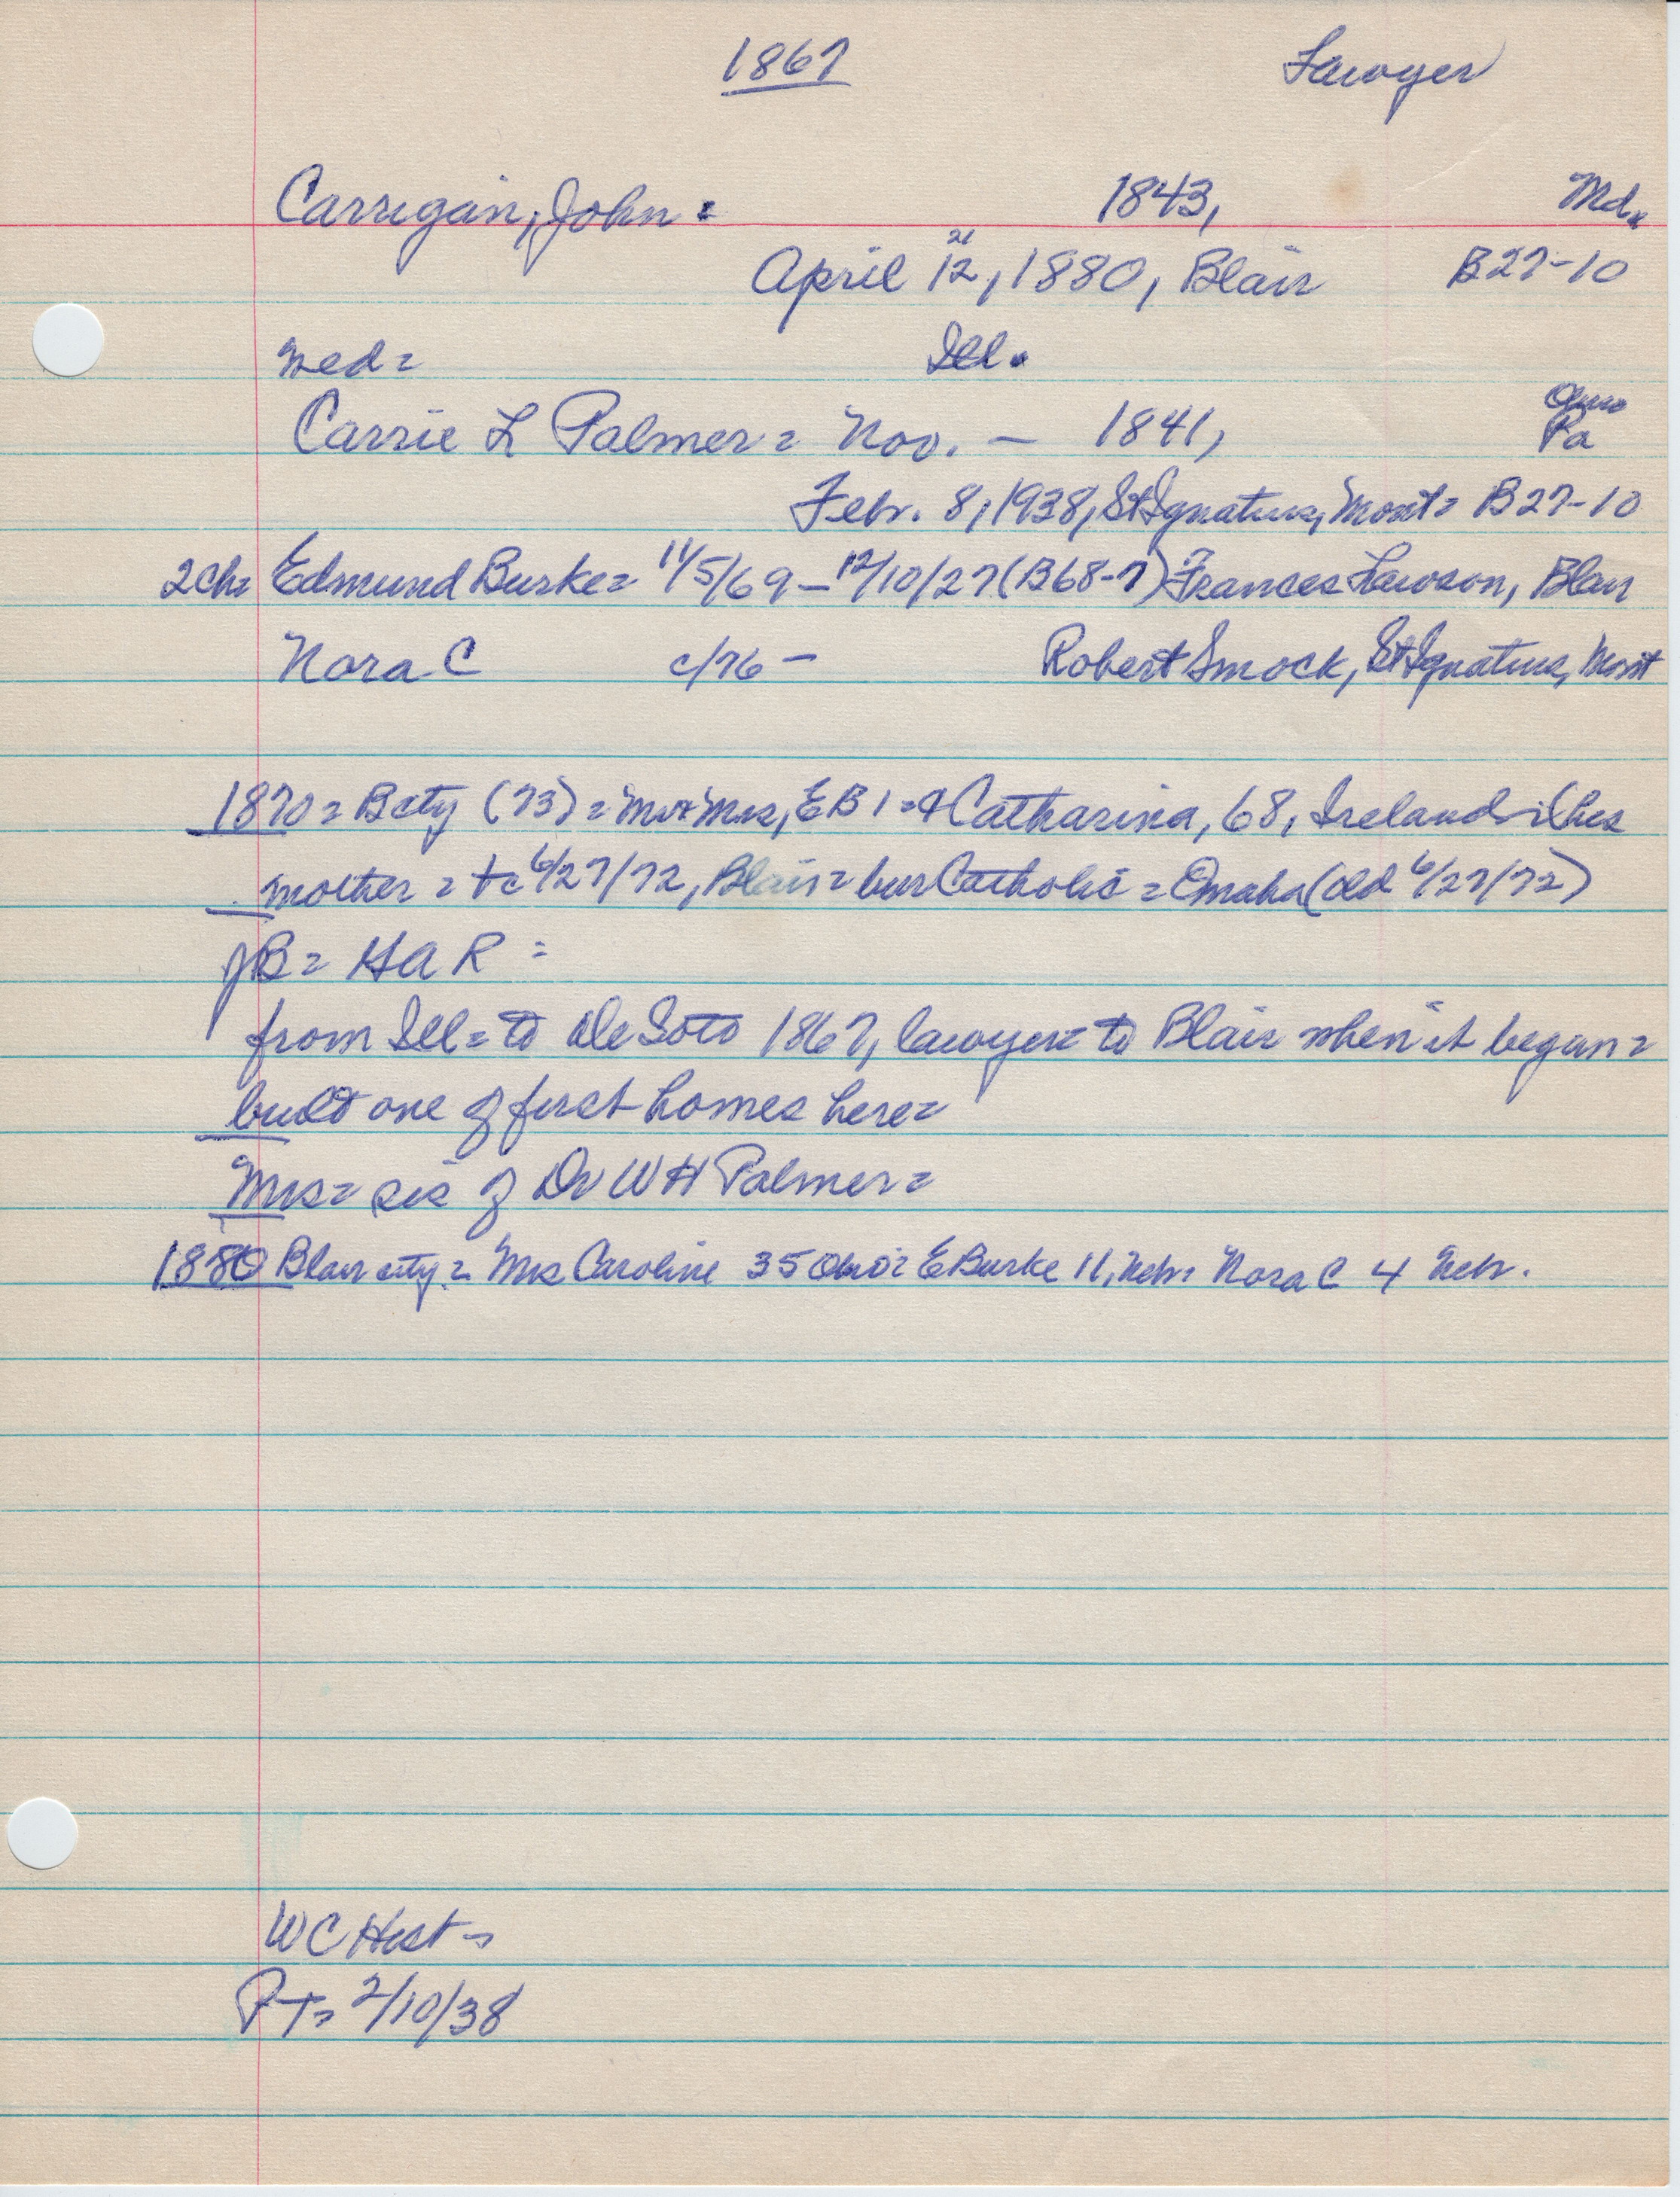 1867 Lawyer
Carrigan, John = 1843, Md.
21
April 12, 1880, Blair B27-10
med = Ill.
Ohio
Carrie L Palmer = Nov. — 1841, Pa
Febr. 8, 1938, St Ignatius, Mont = B27-10
2 ch = Edmund Burke = 11/5/69 — 12/10/27 (B68-7) Frances Lawson, Blair
Nora C c/76 — Robert Smock, St Ignatius, Mont
1870 = B city (73) = Mr & Mrs, E B 1 = & Catharina, 68, Ireland = (his
mother = + c 6/27/72, Blair = bur Catholic = Omaha (old 6/27/72)
JB = HAR =
from Ill = to De Soto 1867, lawyer = to Blair when it began =
built one of first homes here =
Mrs = sis of Dr W H Palmer =
1880 Blair city = Mrs Caroline 35 Ohio = E Burke 11, Nebr = Nora C 4 Nebr.
W C Hist =
PT = 2/10/38